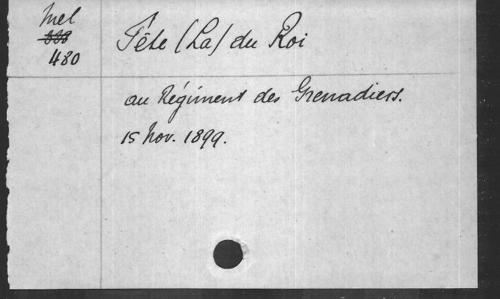 Mel
480
Fête (La) du Roi
au Régiment des Grenadiers.
15 Nov. 1899.